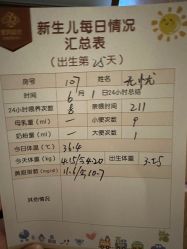 新生儿每日情况
汇总表
(出生第25天)
房号 107 姓名
时间 6月1日24小时总结
24小时喂养次数 8 亲喂时间 211
母乳量(ml) 小便次数 9
奶粉量(ml) 大便次数 1
今日体温(℃) 36.4
今天体重(kg) 4.15/5.420 出生体重 3.55
黄疸指数(mg/dl) 11.6/5.10.7
其他情况